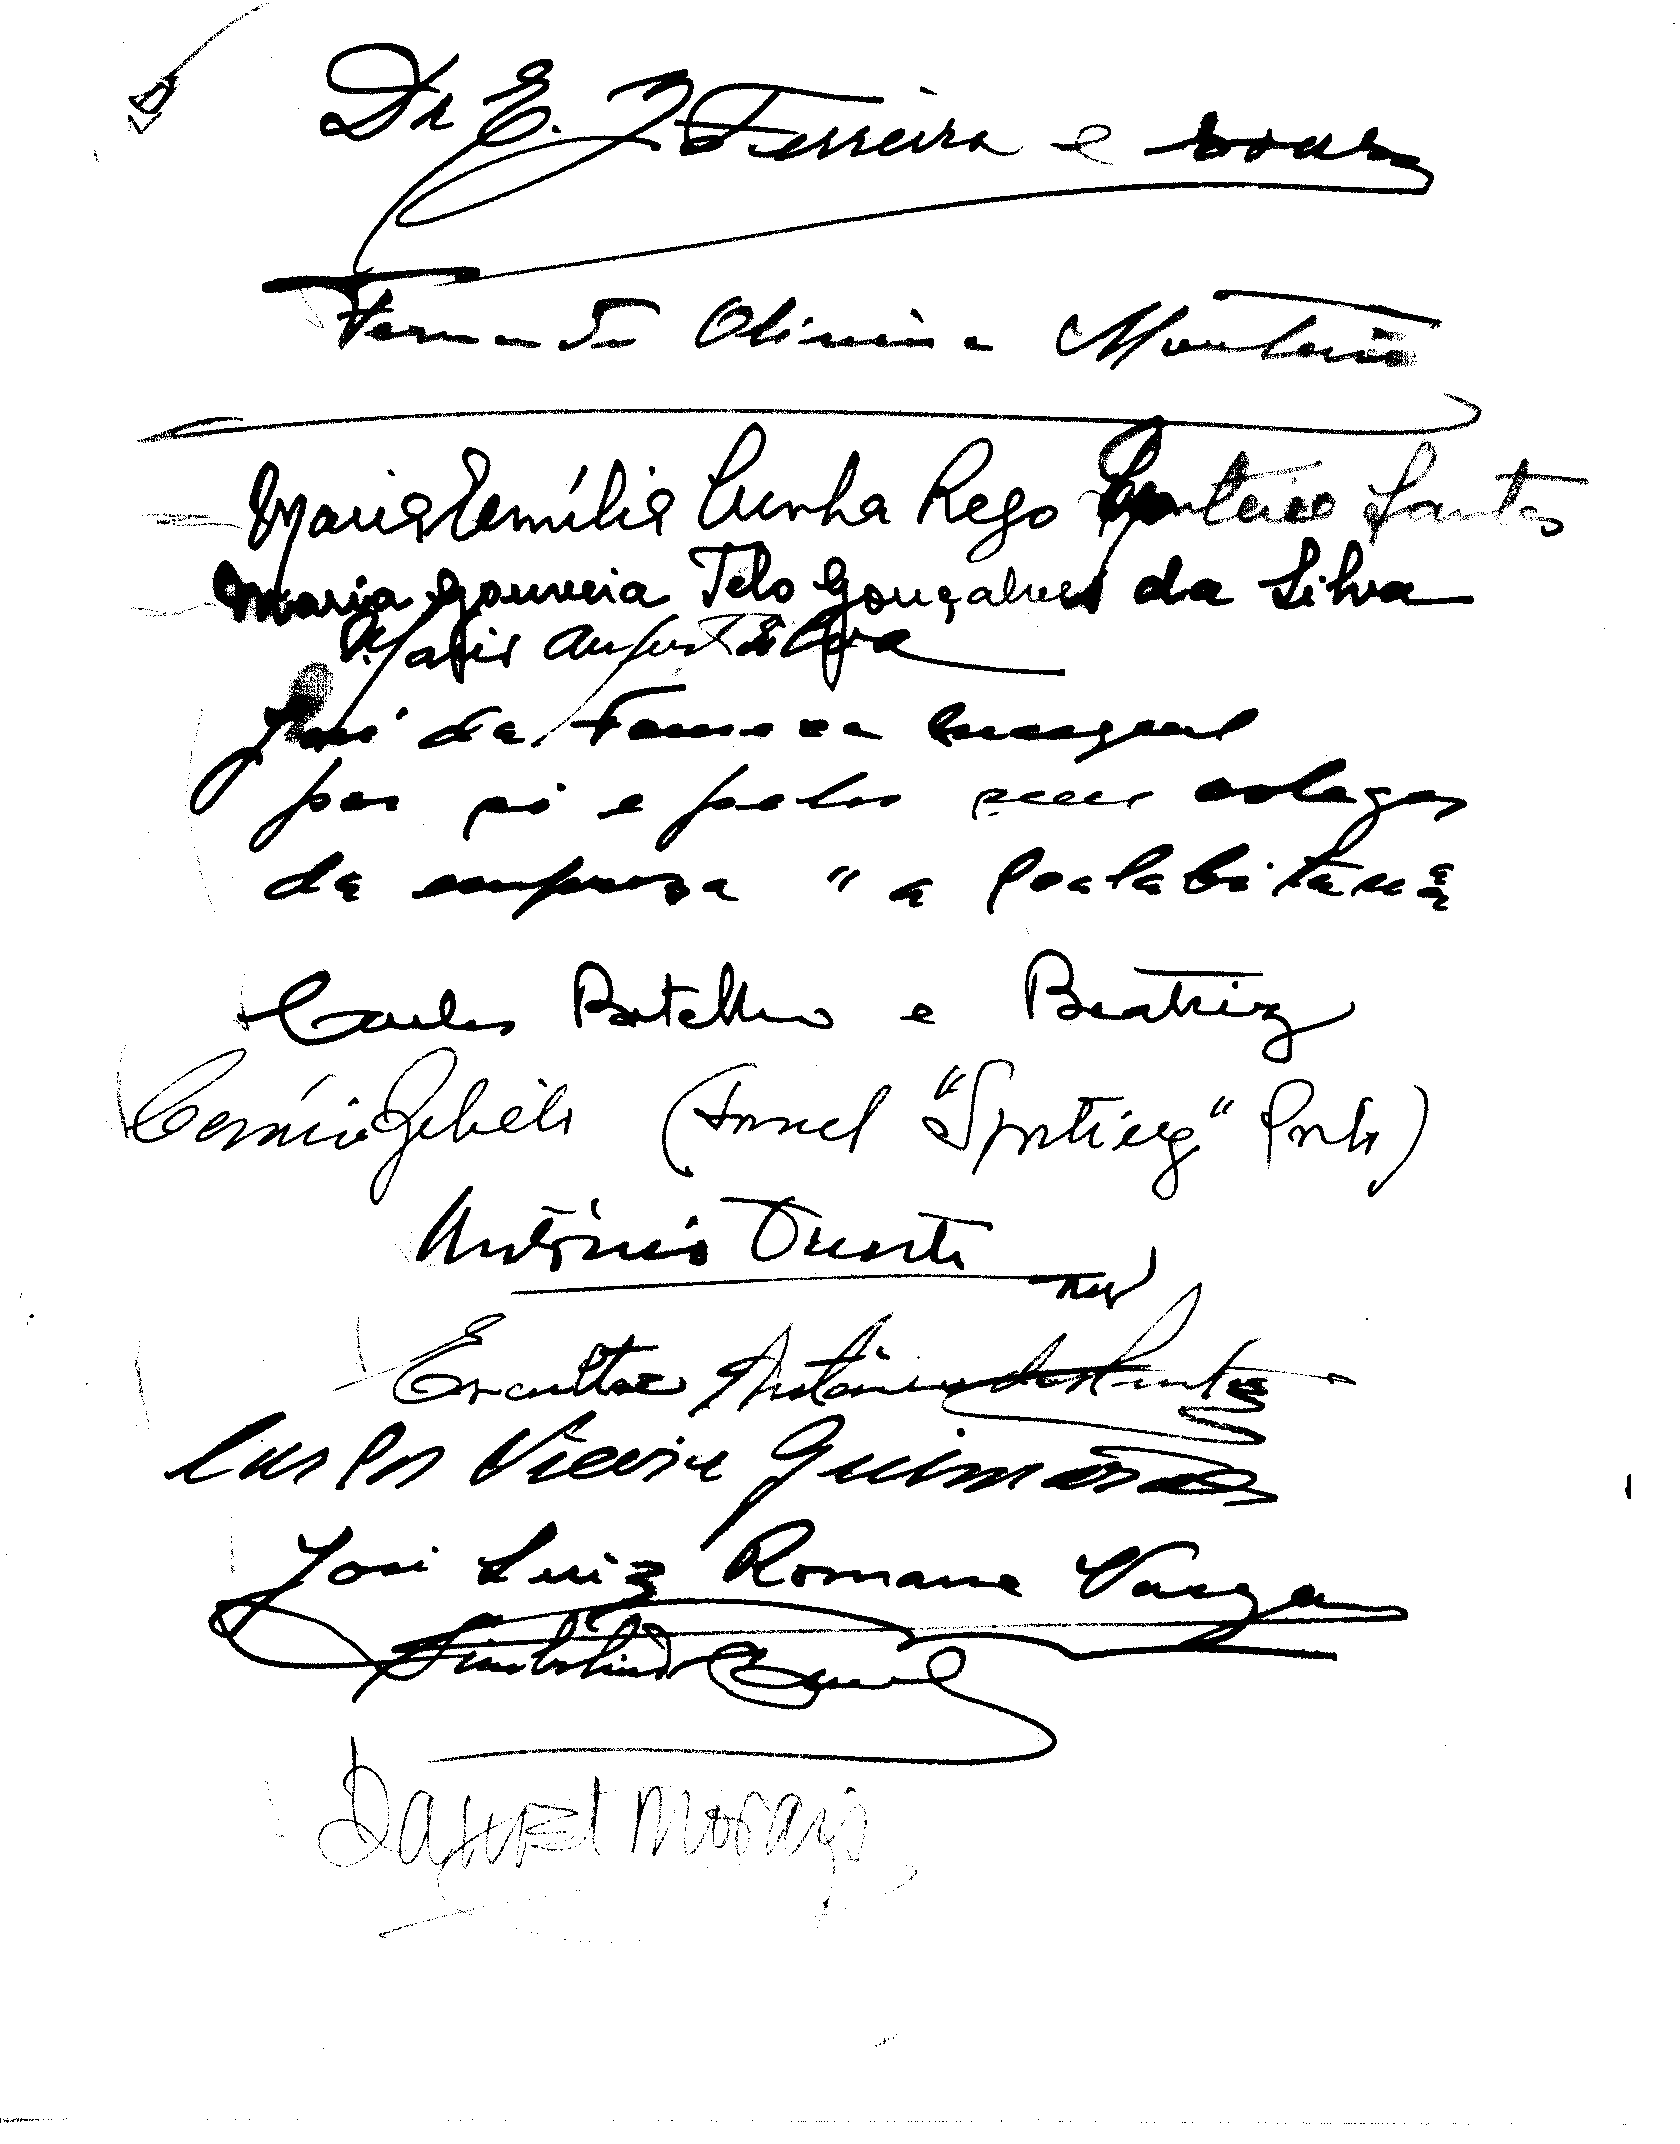 Dr E. J Ferreira e
Fernando Oliveira Monteiro
Maria Emília Cunha Rego Monteiro Santos
Maria Gouveia Telo Gonçalves da Silva
Maria Augusta Silva
José da Fonseca
por si e pelos seus colegas
da empresa "a Scalabitana
Carlos Botelho e Beatriz
(Jornal "Sporting" Porto)
António Duarte
Escultor António dos Santos
Carlos Vieira Guimarães
José Luiz Romana Vargas
Daniel Morais